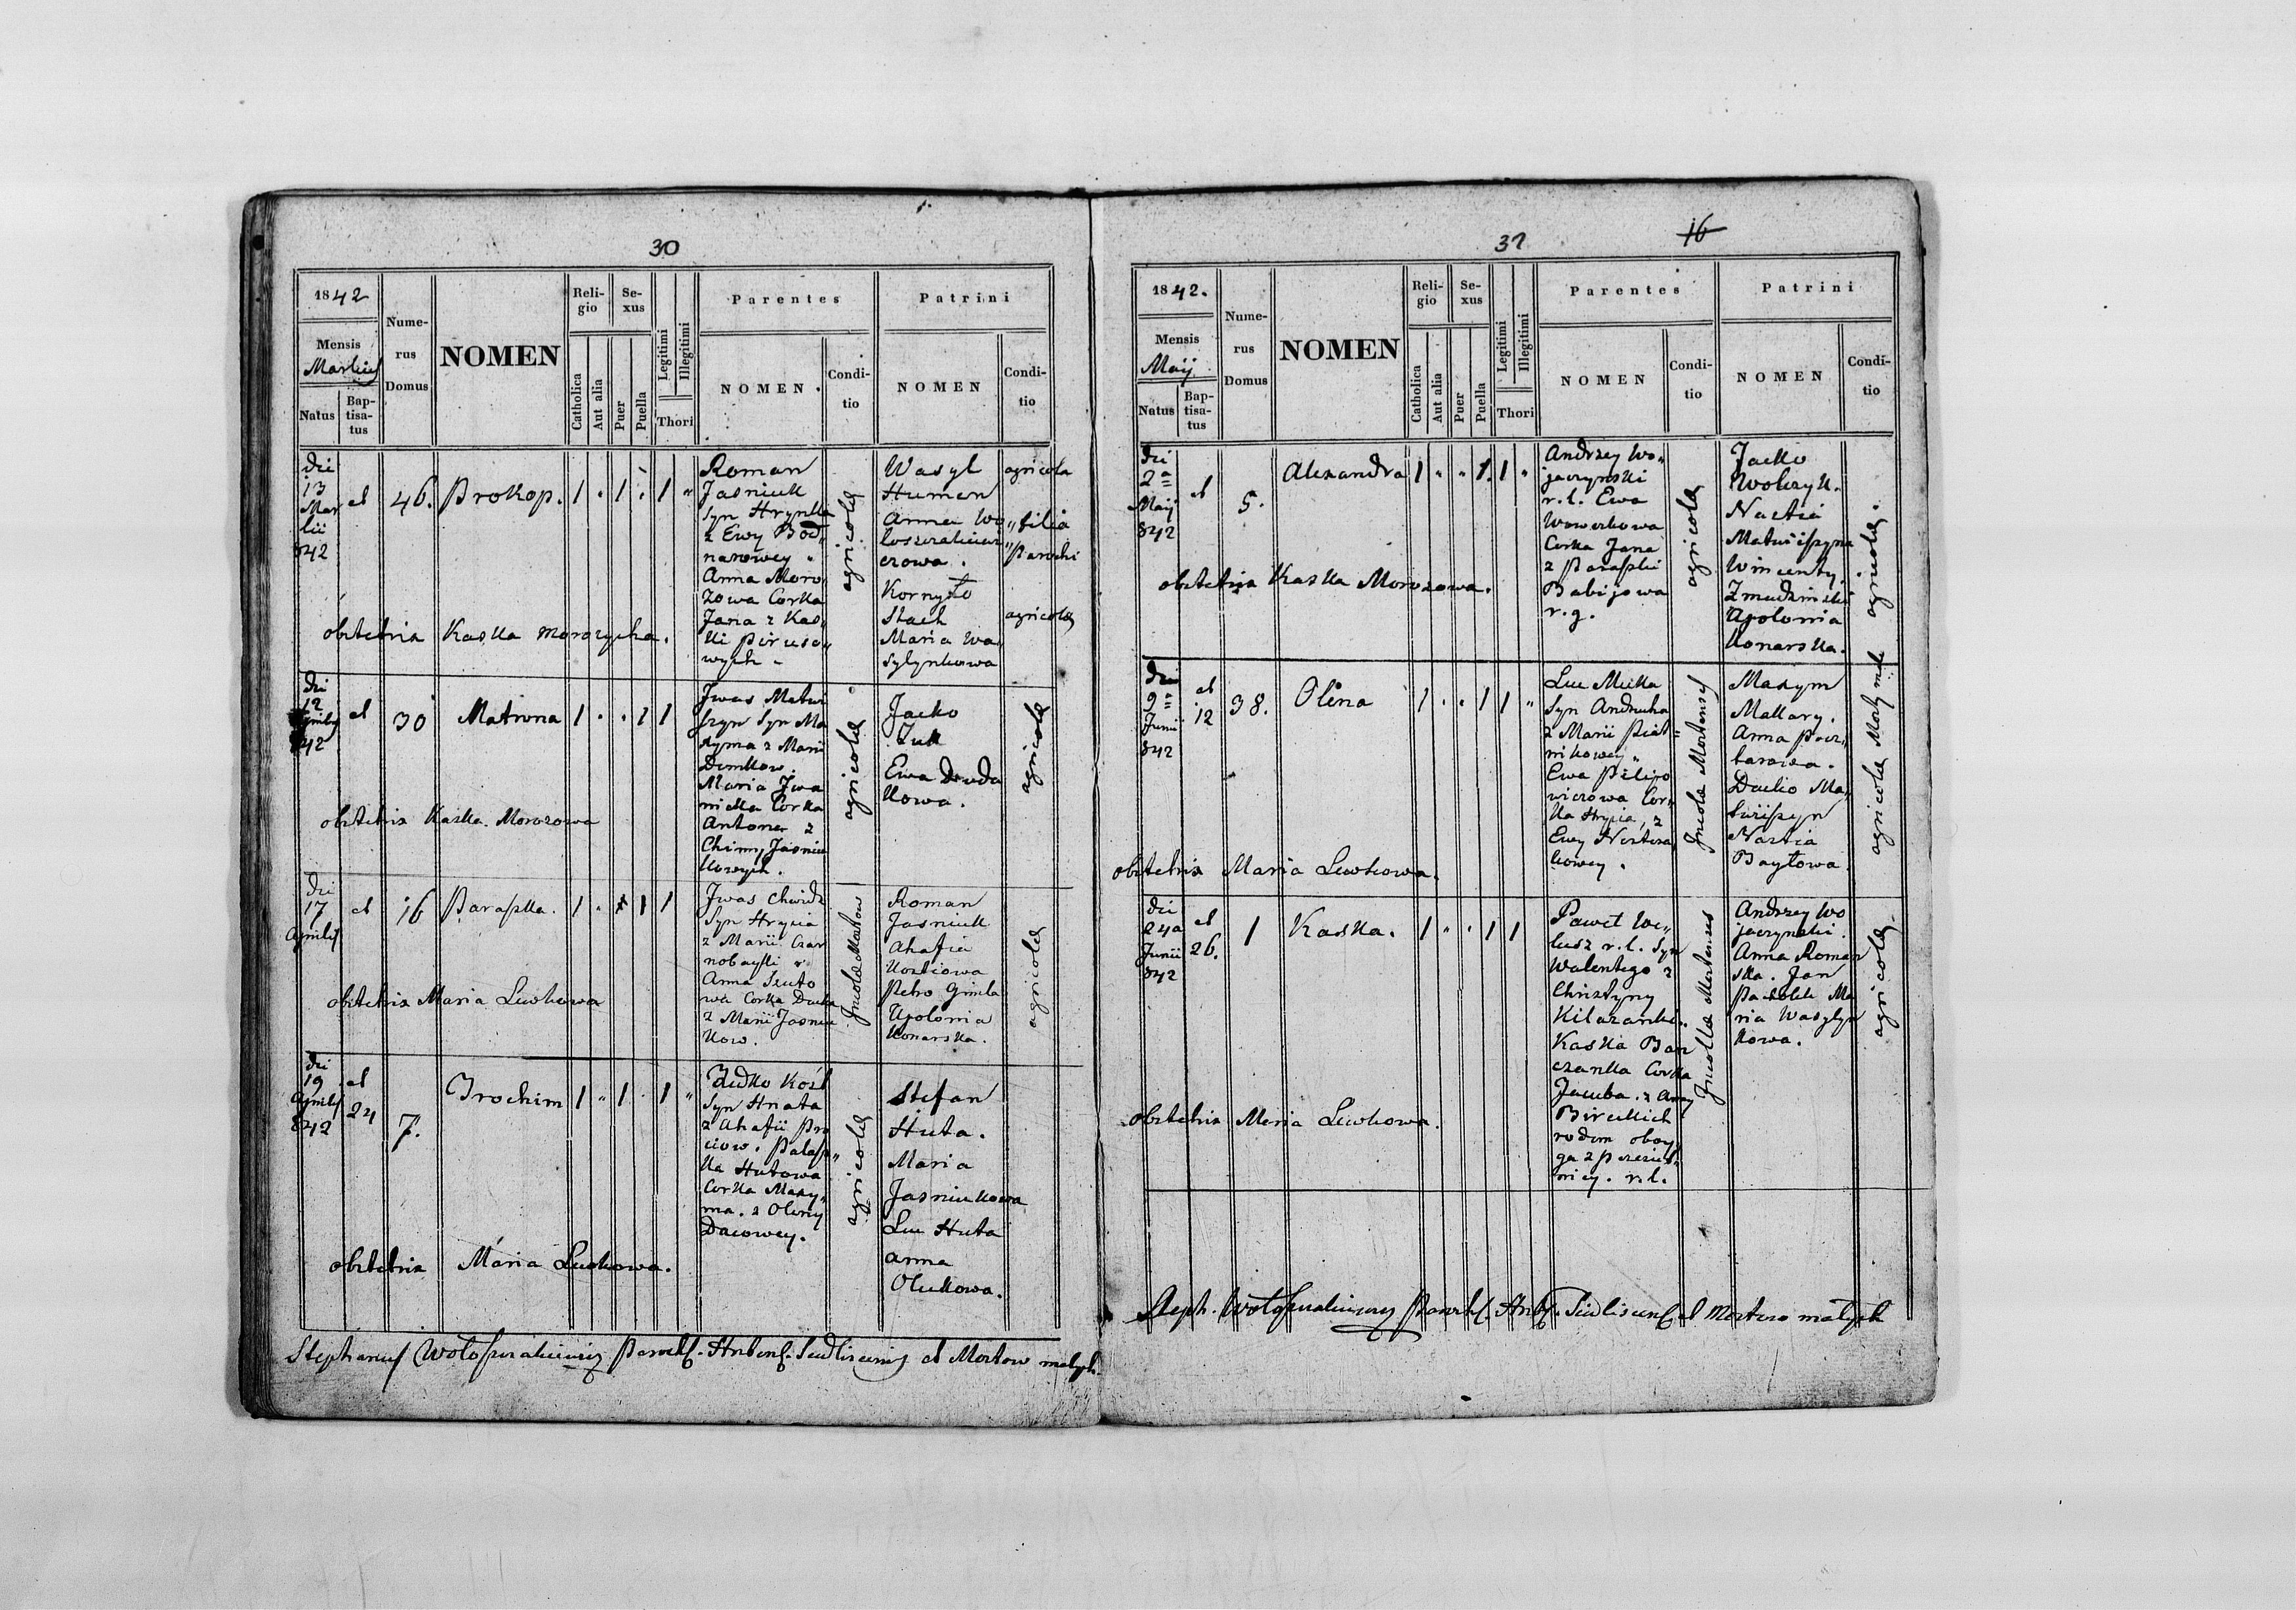 30
1842
Mensis
Martius
Natus
Baptisatus
Numerus Domus
NOMEN
Religio
Catholica
Aut alia
Sexus
Puer
Puella
Legitimi
Illegitimi
Thori
Parentes
NOMEN.
Conditio
Patrini
NOMEN
Conditio
Dei
13
Mar
tii
842
et
46.
Prokop.
1 . 1 . 1 "
Roman
Jasniuk
Syn Hrynka
z Ewy Bod„
narowey "
Anna Moro
zowa Corka
Jana z Kas„
ki Piruso„
wych
agricolæ
Wasyl
Humen
Anna Wo„
loszunkiewi
czowa.
Kornyło
Stach
Maria Wa„
sylynkowa
agricola
„filia
„Parochi
agricolæ
obstetrix Kaska Morozycha.
Dei
12
Aprilis
842
et
30
Matrona
1 . . 1 1
Jwas Matwi
szyn Syn Ma
xyma z Marii
Demkow.
Maria Jwa
nicka Corka
Antona z
Chimy Jasniu
kowych.
agricolæ
Jacko
Żuk
Ewa Duda
kowa.
agricolæ
obstetrix Kaska Morozowa
Dei
17
Aprilis
et
16
Paraska.
1 . 1 1
Jwas
Syn Hrycia
z Marii Czar
Anna
wa Corka
z Marii Jasniu
kow.
Jncolæ Mostow
Roman
Jasniuk
Ahafia
Kostiowa
Petro Gimla
Apolonia
Konarska.
agricolæ
obstetrix Maria Lewkowa
Dei
19
Aprilis
842
et
24
7.
Trochim
1 " 1 . 1 "
Fedko Kośt
Syn Hnata
z Ahafii
Parasz„
ka Hutowa
Corka Maxy„
ma. z Oleny
Dacowey.
agricolæ
Stefan
Huta.
Maria
Jasniukowa
Luc Huta
Anna
Olukowa.
obstetrix Maria Lewkowa.
Stephanus
et Mostow małych.
37
16
1842.
Mensis
Maij
Natus
Baptisatus
Numerus Domus
NOMEN
Religio
Catholica
Aut alia
Sexus
Puer
Puella
Legitimi
Illegitimi
Thori
Parentes
NOMEN
Conditio
Patrini
NOMEN
Conditio
Dei
2a
Maij
842
et
5.
Alexandra
1 " " 1. 1 "
Andrzey Wo„
jaczynski
r.l. Ewa
Wowerkowa
Corka Jana
z Paraski
Babijowa
r.g.
agricolæ
Jacko
Wolczyk.
Nastia
Matwiiszyna
Wincenty
Zmudzinski
Apolonia
Konarska.
agricolæ.
obstetrix Kaska Morozowa.
Dei
9a
Junii
842
et
12
38.
Olena
1 . . 1 1 "
Luc Mucka
Syn Andrucha
z Marii
nikowey„
Ewa Pilipo
wiczowa Cor„
ka Hrycia, z
Ewy
kowey.
Jncolæ Mostenses
Maxym
Makary.
Anna
Dacko Ma„
twiiszyn
Nastia
Bayłowa
agricolæ
obstetrix Maria Lewkowa.
Dei
24a
Junii
842
et
26.
1
Kaska.
1 " . 1 1
Paweł We„
lusz r.l. Syn
Walentego z
Christyny
Kaska Bar
czanka Corka
Jacuba. z Anny
rodem oboy„
ga z
r.l.
Jncolæ Mostenses
Andrzey Wo
jaczynski.
Anna Roman
ska. Jan
Pacholek Ma
ria Wasylyn
kowa.
agricolæ
obstetrix Maria Lewkowa.
Steph.
et Mostow małych